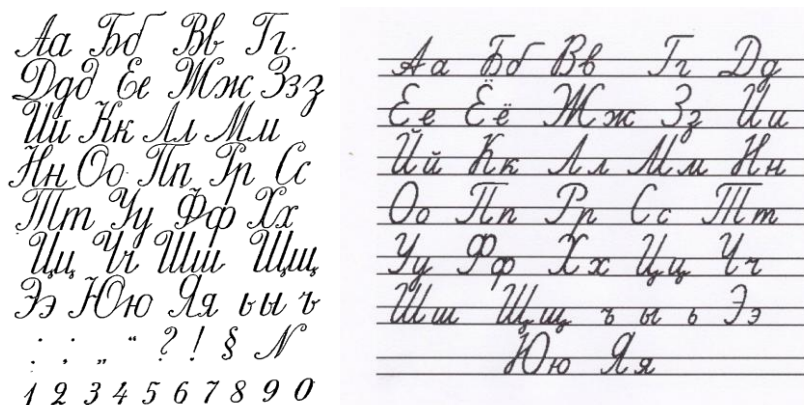 Аа Бб Вв Гг.
Ддд Ее Жж Ззз
Ий Кк Лл Мм
Нн Оо Пп Рр Сс
Тт Уу Фф Хх
Цц Чч Шш Щщ
Ээ Юю Яя ь ы ъ
: ; „ “ ? ! § N
1 2 3 4 5 6 7 8 9 0
Аа Бб Вв Гг Дд
Ее Ёё Жж Зз Ии
Йй Кк Лл Мм Нн
Оо Пп Рр Сс Тт
Уу Фф Хх Цц Чч
Шш Щщ ъ ы ь Ээ
Юю Яя